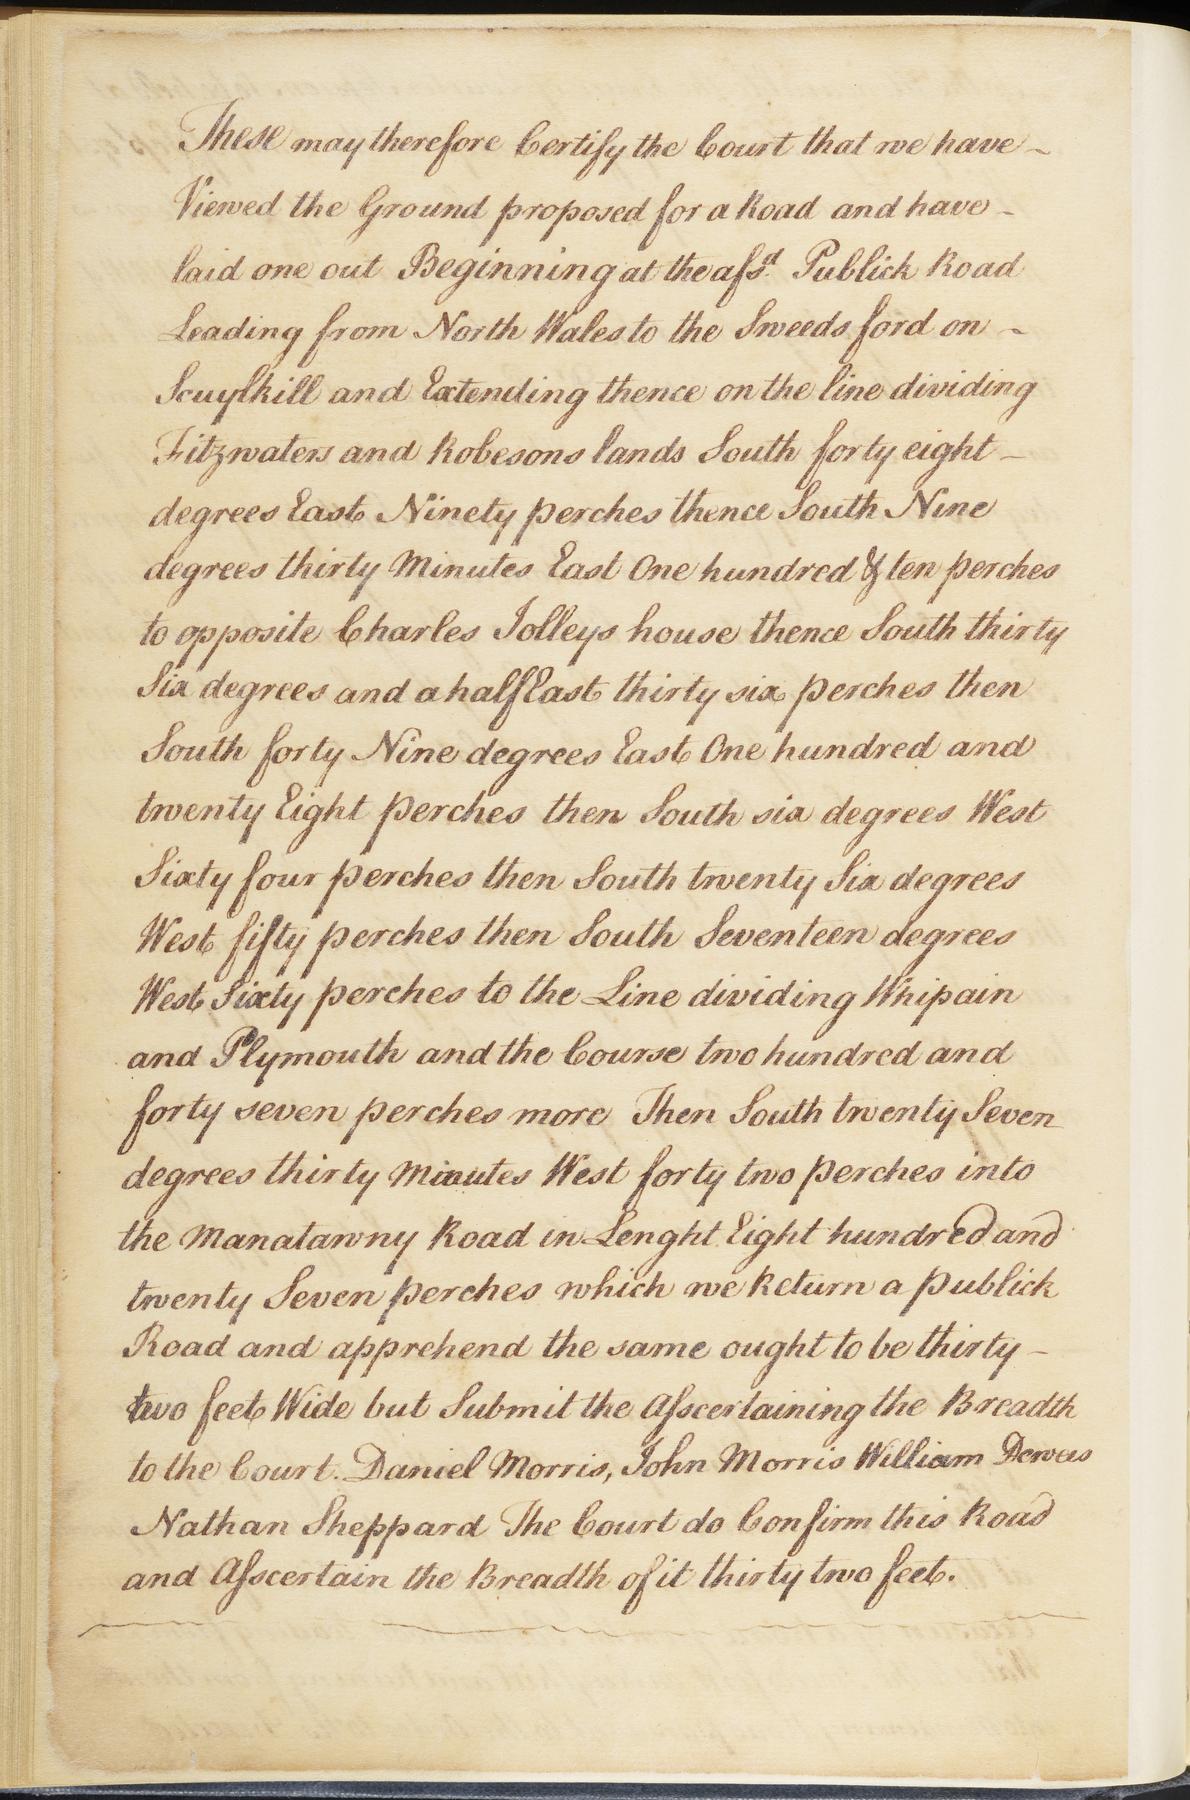 These may therefore Certify the Court that we have –
Viewed the Ground proposed for a Road and have –
laid one out Beginning at the afsd. Publick Road
Leading from North Wales to the Sweeds ford on –
Scuylkill and Extending thence on the line dividing
Fitzwaters and Robesons lands South forty eight –
degrees East Ninety perches thence South Nine
degrees thirty Minutes East One hundred & ten perches
to opposite Charles Jolleys house thence South thirty
Six degrees and a half East thirty six perches then
South forty Nine degrees East One hundred and
twenty Eight perches then South six degrees West
Sixty four perches then South twenty Six degrees
West fifty perches then South Seventeen degrees
West Sixty perches to the Line dividing Whipain
and Plymouth and the Course two hundred and
forty seven perches more Then South twenty Seven
degrees thirty Minutes West forty two perches into
the Manatawny Road in Lenght Eight hundred and
twenty Seven perches which we Return a publick
Road and apprehend the same ought to be thirty –
two feet Wide but Submit the Afscertaining the Breadth
to the Court. Daniel Morris, John Morris William Dewees
Nathan Sheppard The Court do Confirm this Road
and Afscertain the Breadth of it thirty two feet.